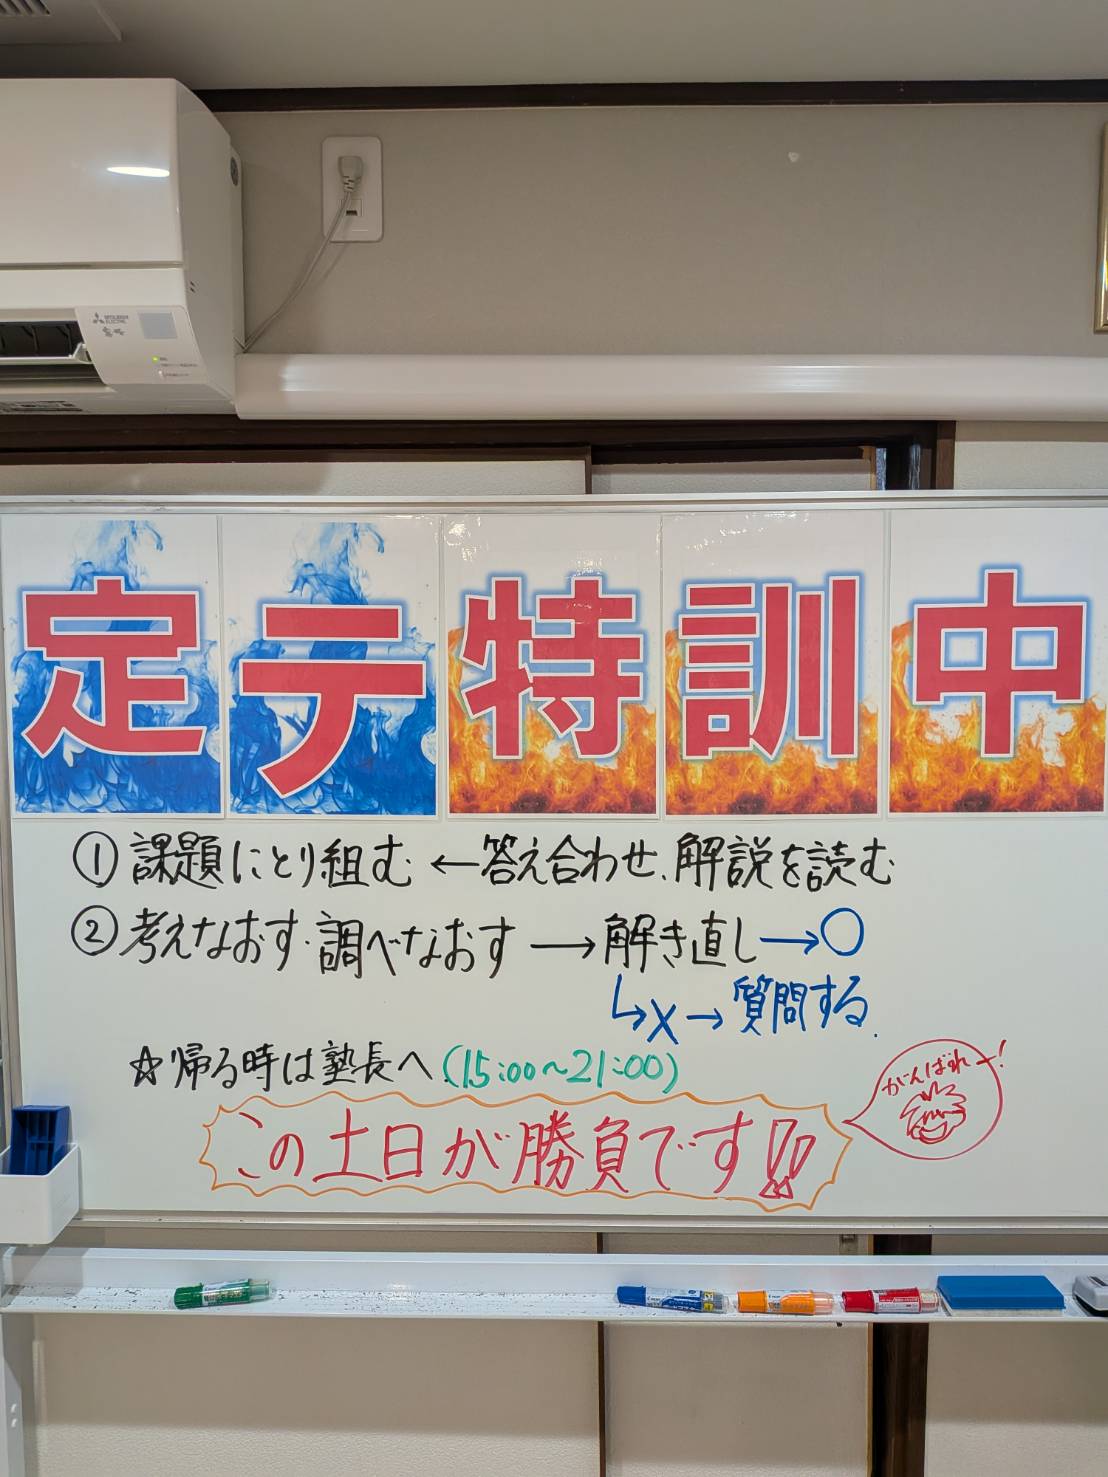 MITSUBISHI ELECTRIC
定テ特訓中
①課題にとり組む ←答え合わせ、解説を読む
②考えなおす・調べなおす → 解き直し → ○
↳ × → 質問する.
☆帰る時は塾長へ(15:00~21:00)
がんばれー!
この土日が勝負です!!